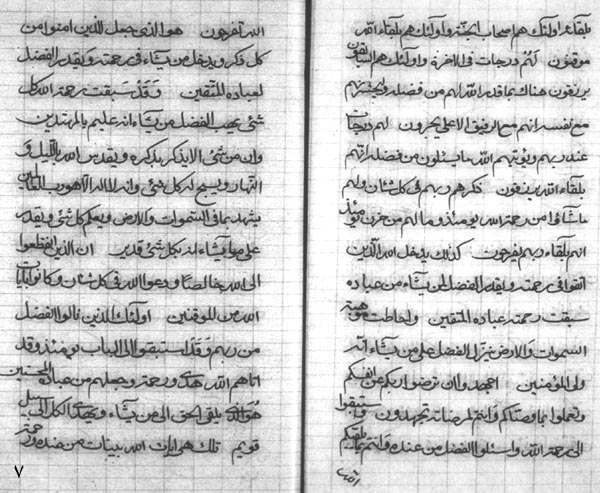 هم اصحاب الجنة واولئك هم بلقاء الله
موقنون لهم درجات في الاخرة واولئك هم السابقون
يرزقون هناك بما قدر الله لهم من فضله
مع نفسه انهم مع الرفيق الاعلى لهم درجات
عند ربهم ويؤتيهم الله ما يسئلون من فضله انهم
بلقاء الله يرزقون ذكرهم ربهم في كل شان ولهم
ما شاؤا من رحمة الله يومئذ وما لهم من حزن يومئذ
انهم بلقاء ربهم يفرحون كذلك يدخل الله الذين
اتقوا في رحمته ويقدر الفضل لمن يشاء من عباده
سبقت رحمته عباده المتقين واحاطت موهبته
السموات والارض ينزل الفضل على من يشاء انه
ولى المؤمنين اجهدوا ان ترضوا ربكم عن انفسكم
وتعملوا بما وصاكم وانتم لمرضاته تجهدون واستبقوا
الى رحمة الله واسئلوا الفضل من عنده وانتم
الله تفرحون هو الذى جعل الذين امنوا من
كل ذكر ويدخل من يشاء في رحمته ويقدر الفضل
لعباده المتقين وقد سبقت رحمة الله كل
شئ يهب الفضل من يشاء انه عليم بالمهتدين
وان من شئ الا يذكر بذكره ويقدس الله بالليل و
النهار ويسبح له كل شئ وانه لا اله الا هو رب العالمين
يشهد ما في السموات والارض ويعلم كل شئ ويقدر
على ما يشاء انه بكل شئ قدير ان الذين انقطعوا
الى الله خالصا ودعوا الله في كل شان وكانوا بايات
الله من الموقنين اولئك الذين نالوا الفضل
من ربهم وقد استبقوا الى الباب يومئذ وقد
اتاهم الله هدى ورحمة وجعلهم من عباده المحسنين
هو الذى يلقى الحق الى من يشاء ويهدى الكل الى سبيل
قويم تلك هى ايات الله بينات من عنده ورحمة
٧